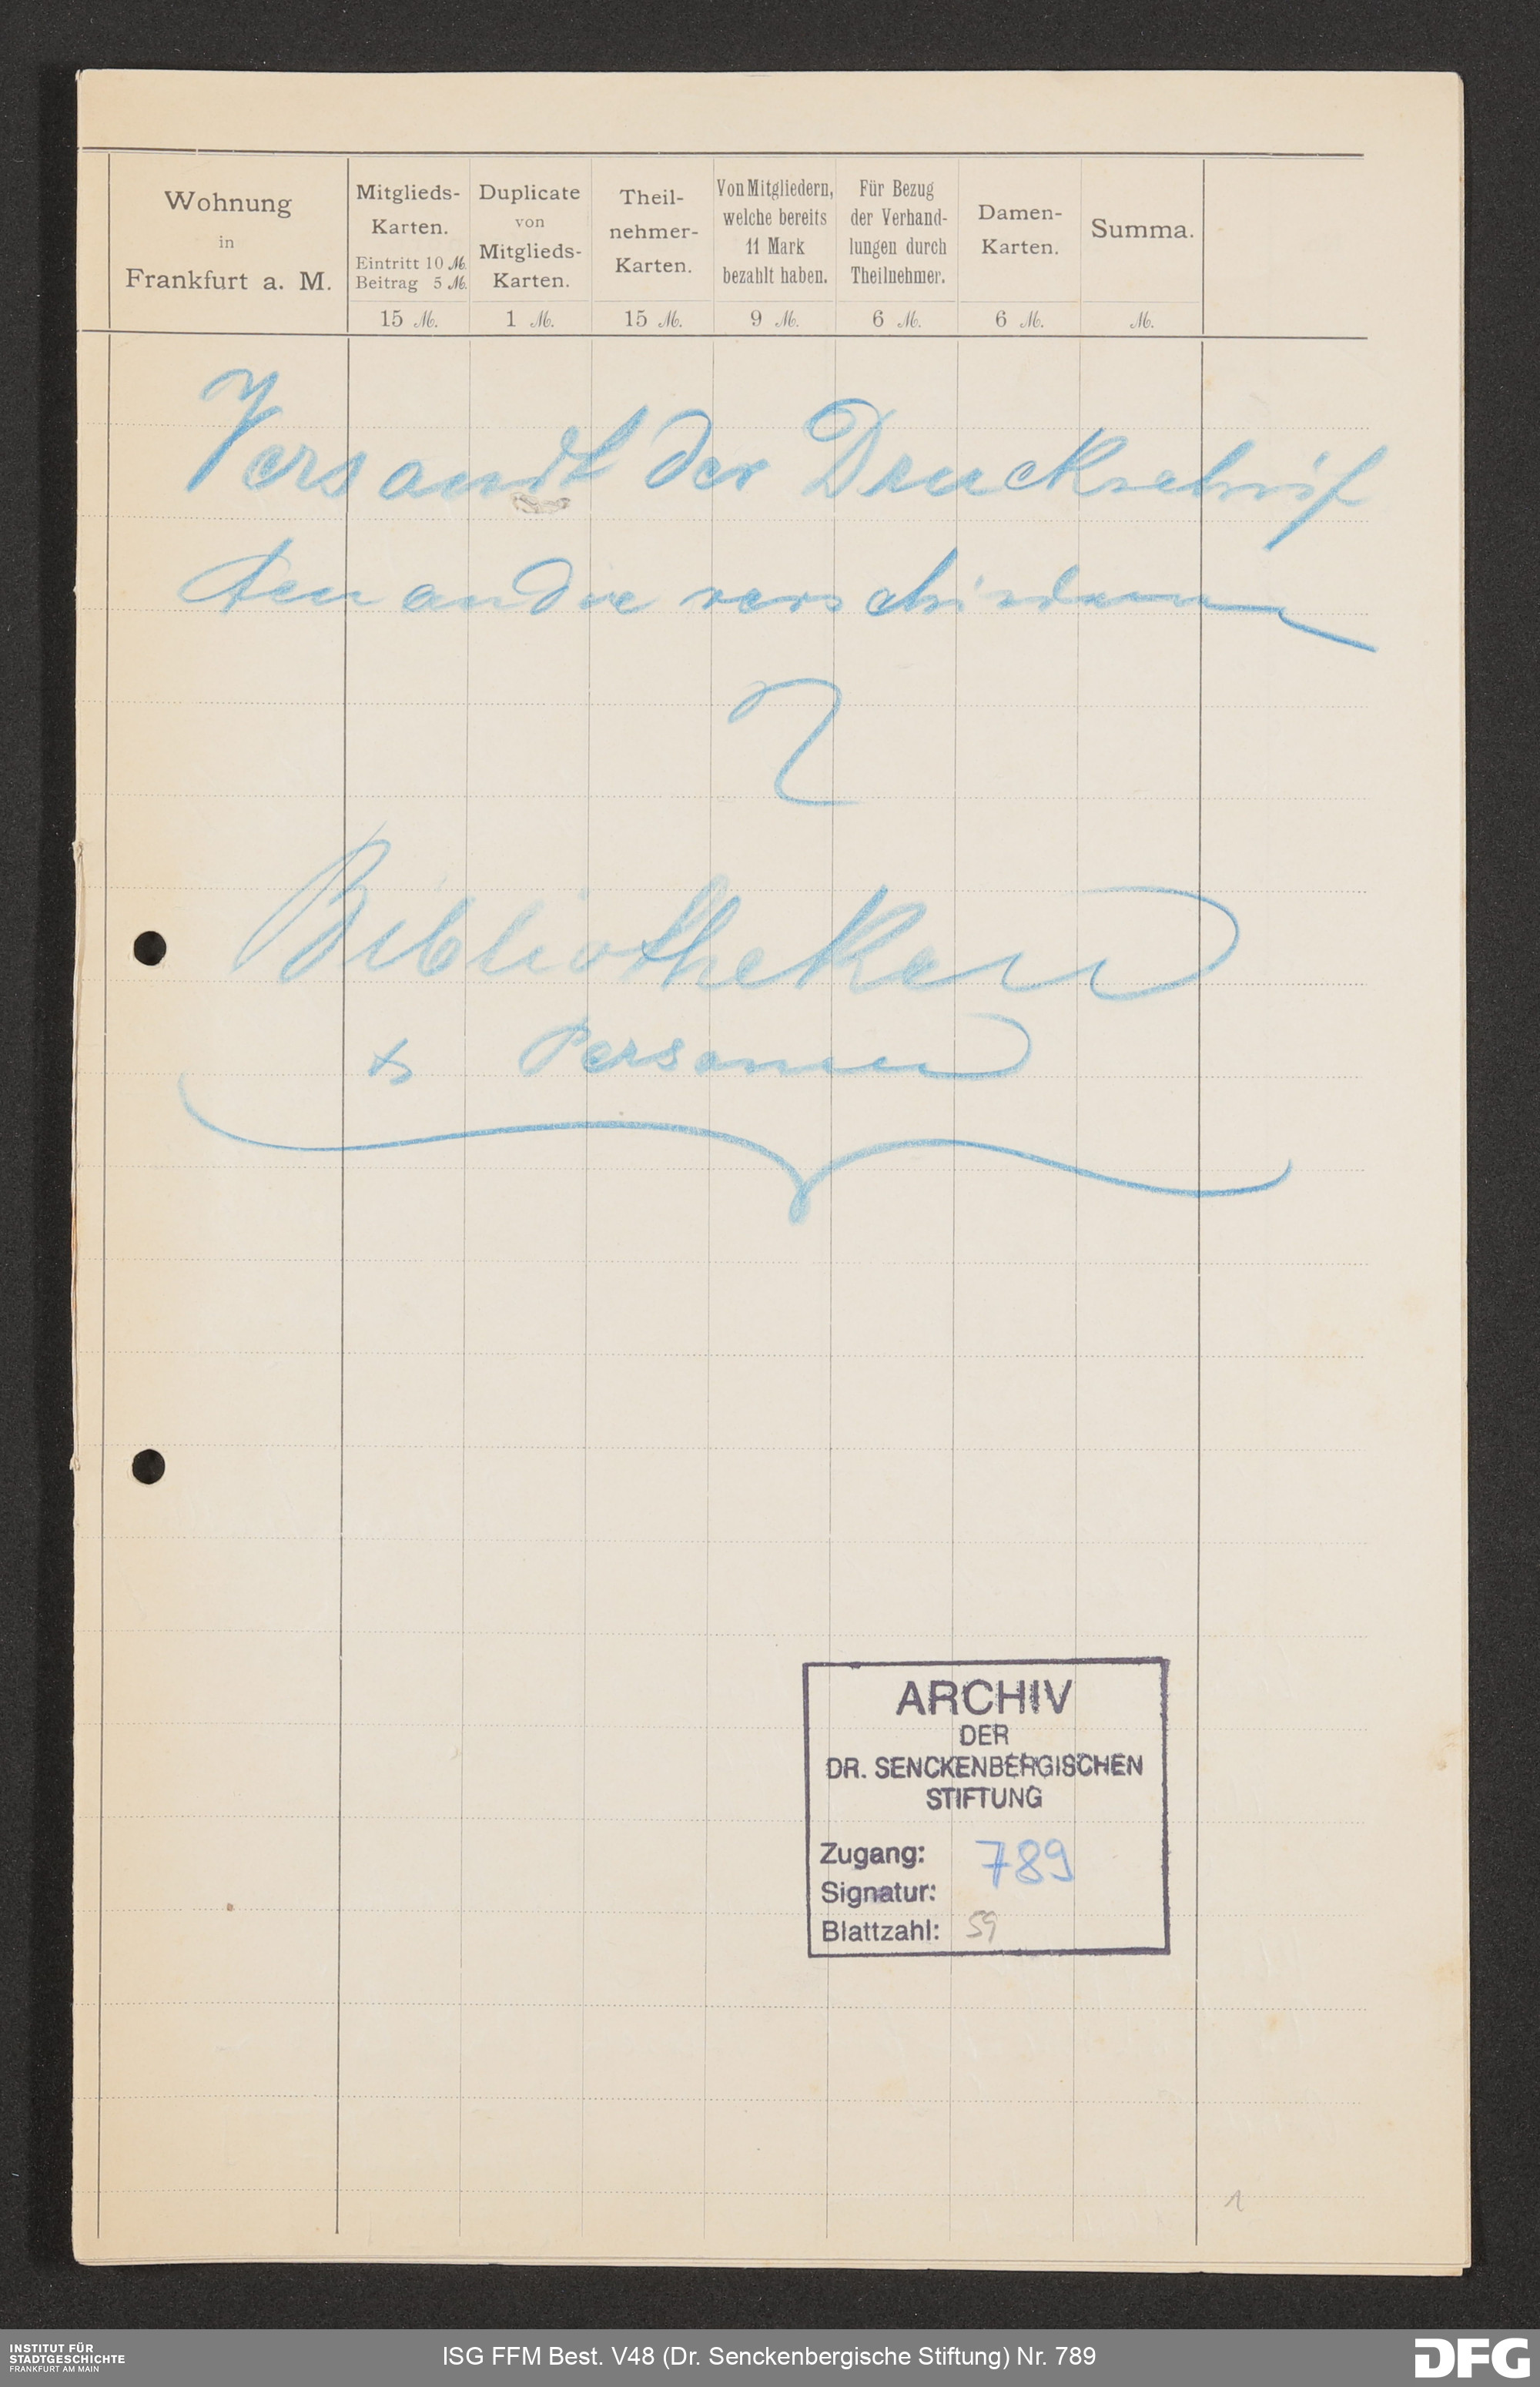 Wohnung
in
Frankfurt a. M.
Mitglieds-
Karten.
Eintritt 10 ℳ.
Beitrag 5 ℳ.
15 ℳ.
Duplicate
von
Mitglieds-
Karten.
1 ℳ.
Theil-
nehmer-
Karten.
15 ℳ.
Von Mitgliedern,
welche bereits
11 Mark
bezahlt haben.
9 ℳ.
Für Bezug
der Verhand-
lungen durch
Theilnehmer.
6 ℳ.
Damen-
Karten.
6 ℳ.
Summa.
ℳ.
Versandt der Druckschrif
ten an die verschiedenen
Bibliotheken
& Personen
ARCHIV
DER
DR. SENCKENBERGISCHEN
STIFTUNG
Zugang: 789
Signatur:
Blattzahl: 59
1
INSTITUT FÜR
STADTGESCHICHTE
FRANKFURT AM MAIN
ISG FFM Best. V48 (Dr. Senckenbergische Stiftung) Nr. 789
DFG